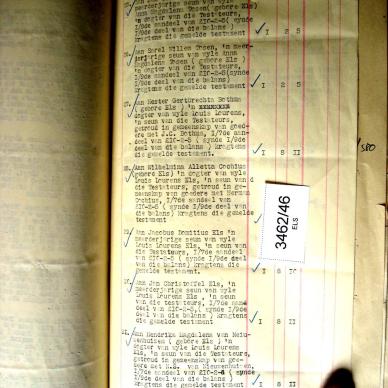 meerderjarige seun van wyle
Anna Magdalena Dosen (gebore Els)
'n dogter van die Testateurs,
I/5de aandeel van £IC-2-8 (synde
I/9de deel van die balans)
kragtens die gemelde testament I 2 5
Aan Karel Willem Dosen, 'n meer-
derjarige seun van wyle Anna
Magdalena Dosen (gebore Els)
'n dogter van die Testateurs,
I/5de aandeel van £IC-2-8 (synde
I/9de deel van die balans)
kragtens die gemelde testament I 2 5
Aan Hester Gertbrechta Bothma
(gebore Els) 'n
dogter van wyle Louis Lourens,
'n seun van die Testateurs,
getroud in gemeenskap van goed-
ere met J.C. Bothma, I/7de aan-
deel van £IC-2-8 (synde I/9de
deel van die balans) kragtens die
gemelde testament. I 8 II
Aan Wilhelmina Alletta Crohius
(gebore Els) 'n dogter van wyle
Louis Lourens Els, 'n seun van
die Testateurs, getroud in ge-
meenskap van goedere met Herman
Crohius, I/7de aandeel van
£IC-2-8 (synde I/9de deel van
die balans) kragtens die gemelde
testament
Aan Jacobus Domitius Els 'n
meerderjarige seun van wyle
Louis Lourens Els, 'n seun van
die Testateurs, I/7de aandeel
van £IC-2-8 (synde I/9de deel
van die balans) kragtens die
gemelde testament I 8 II
Aan Jan Christoffel Els, 'n
meerderjarige seun van wyle
Louis Lourens Els, 'n seun van
die testateurs, I/7de aandeel
van £IC-2-8 (synde I/9de deel
van die balans) kragtens die
gemelde testament I 8 II
Aan Hendrika Magdalena van Nieu-
wenhuizen (gebore Els) 'n
dogter van wyle Louis Lourens
Els, 'n seun van die Testateurs,
getroud in gemeenskap van goed-
ere met H.B. van Nieuwenhuizen,
I/7de aandeel van £IC-2-8 (synde
I/9de deel van die balans)
kragtens die gemelde testament I 8 II
3462/46
ELS
580